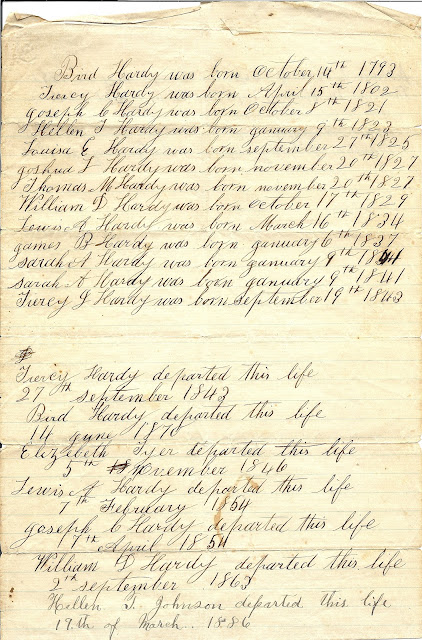 Bird Hardy was born October 14th 1793
Tiercy Hardy was born April 15th 1802
goseph C Hardy was born October 8th 1821
Hellen T Hardy was born ganuary 9th 1823
Louisa E Hardy was born september 27th 1825
goshua T Hardy was born november 20th 1827
Thomas M Hardy was born november 20th 1827
William D Hardy was born October 17th 1829
Lewis A Hardy was born March 16th 1834
games B Hardy was born ganuary 6th 1837
sarah A Hardy was born ganuary 9th
sarah A Hardy was born ganuary 9th 1841
Tiercy J Hardy was born september 19th 1843
Tiercy Hardy departed this life
27th september 1843
Bird Hardy departed this life
14 gune 1870
Elizabeth Tyer departed this life
5th November 1846
Lewis A Hardy departed this life
7th February 1854
goseph C Hardy departed this life
17th April 1854
William D Hardy departed this life
2nd september 1863
Hellen T. Johnson departed this life
19.th of March. 1886